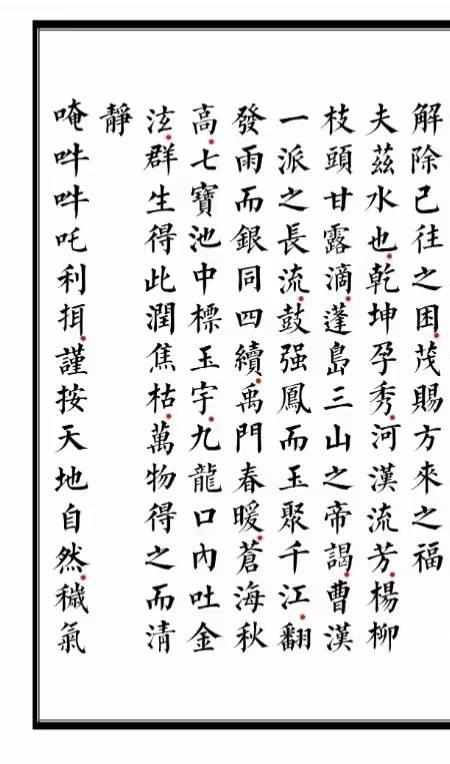 解除已往之困茂賜方來之福
夫茲水也乾坤孕秀河漢流芳楊柳
枝頭甘露滴蓬島三山之帝謁曹漢
一派之長流鼓强鳳而玉聚千江翻
發雨而銀同四續禹門春暖蒼海秋
高七寶池中標玉宇九龍口內吐金
泫群生得此潤焦枯萬物得之而清
靜
唵吽吽吒利挕謹按天地自然穢氣